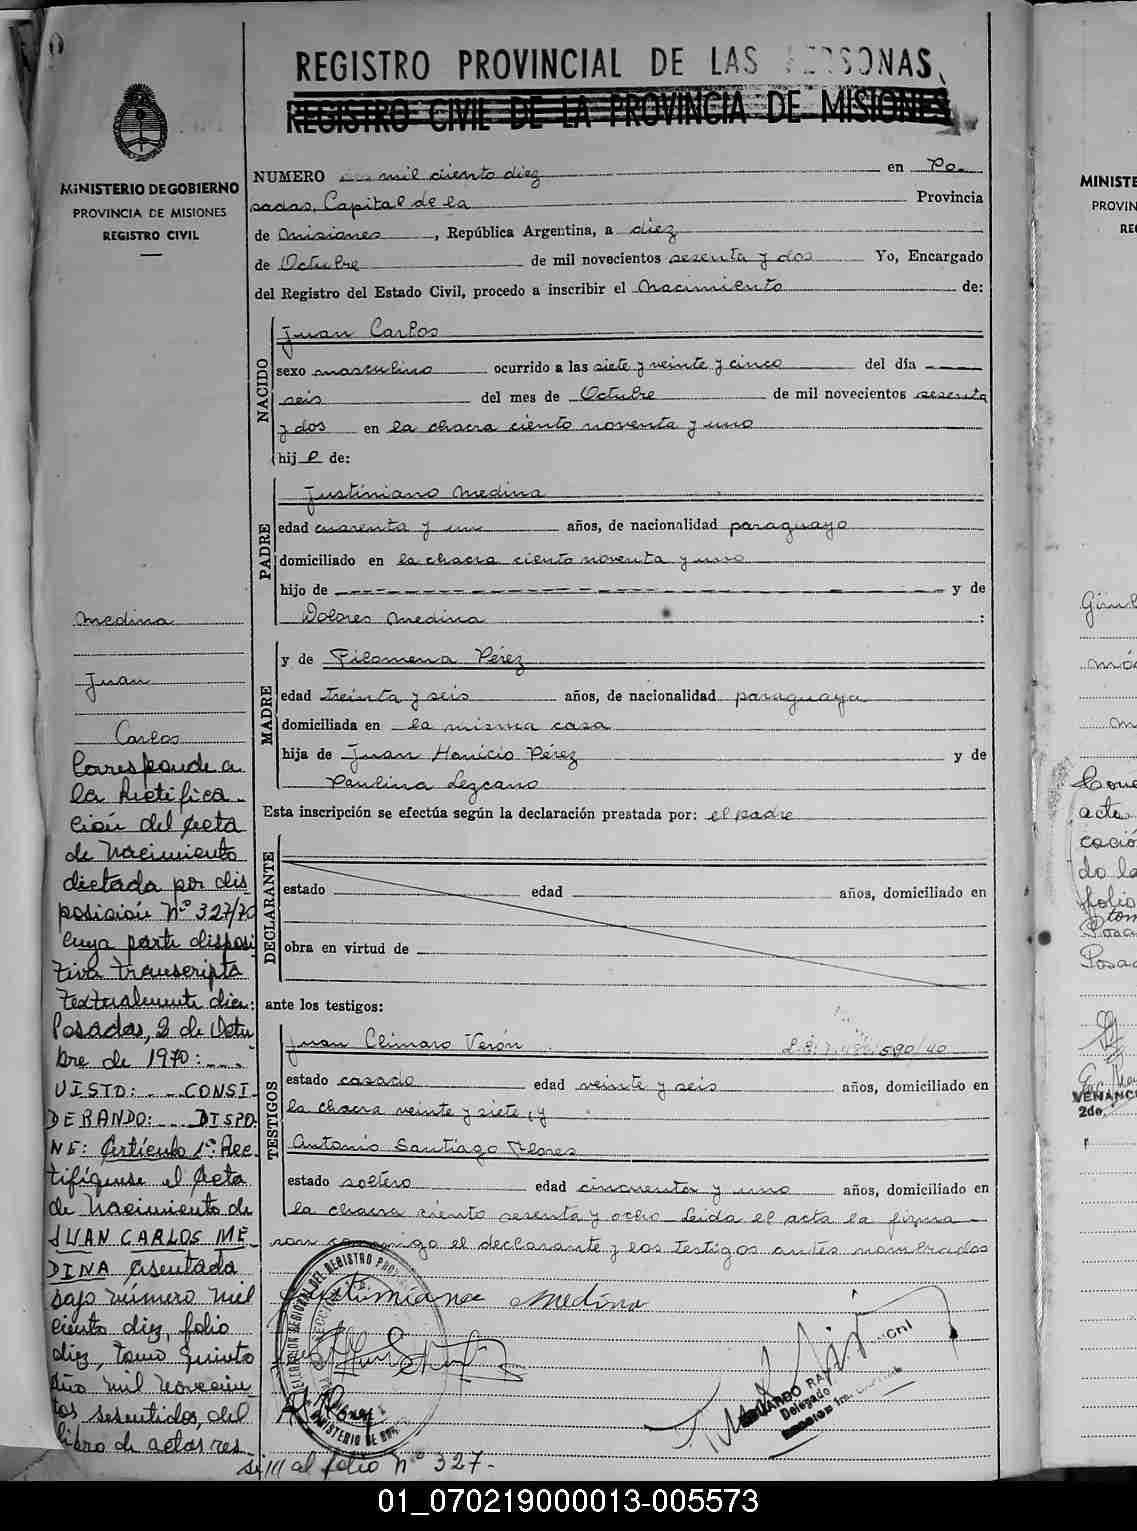 REGISTRO PROVINCIAL DE LAS PERSONAS
REGISTRO CIVIL DE LA PROVINCIA DE MISIONES
MINISTERIO DE GOBIERNO
PROVINCIA DE MISIONES
REGISTRO CIVIL
NUMERO mil ciento diez en Po-
sadas, Capital de la Provincia
de Misiones, República Argentina, a diez
de Octubre de mil novecientos sesenta y dos Yo, Encargado
del Registro del Estado Civil, procedo a inscribir el Nacimiento de:
NACIDO
Juan Carlos
sexo masculino ocurrido a las siete y veinte y cinco del día
seis del mes de Octubre de mil novecientos sesenta
y dos en la chacra ciento noventa y uno
hij o de:
PADRE
Justiniano Medina
edad cuarenta y un años, de nacionalidad paraguayo
domiciliado en la chacra ciento noventa y uno
hijo de y de
Dolores Medina :
MADRE
y de Filomena Pérez
edad treinta y seis años, de nacionalidad paraguaya
domiciliada en la misma casa
hija de Juan Pérez y de
Paulina Lezcano
Esta inscripción se efectúa según la declaración prestada por: el padre
DECLARANTE
estado edad años, domiciliado en
obra en virtud de
ante los testigos:
TESTIGOS
Juan Climaro Verón
estado casado edad veinte y seis años, domiciliado en
la chacra veinte y siete, y
Antonio Santiago Flores
estado soltero edad cincuenta y uno años, domiciliado en
la chacra ciento sesenta y ocho. Leida el acta la firma-
ron conmigo el declarante y los testigos antes nombrados
Justiniano Medina
Medina
Juan
Carlos
Corresponde a
la Rectifica-
ción del Acta
de Nacimiento
dictada por dis
posición Nº 327/70
cuya parte disposi
tiva transcripta
textualmente dice:
Posadas, 2 de Octu
bre de 1970:
VISTO: CONSI-
DERANDO: DISPO-
NE: Artículo 1º: Rec-
tifíquese el Acta
de Nacimiento de
JUAN CARLOS ME-
DINA asentada
bajo número mil
ciento diez, folio
diez, tomo quinto
año mil novecien
tos sesentidos, del
libro de actas res-
al folio nº 327-
Delegado
MINISTE
PROVIN
RE
VENANC
2do.
01_070219000013-005573